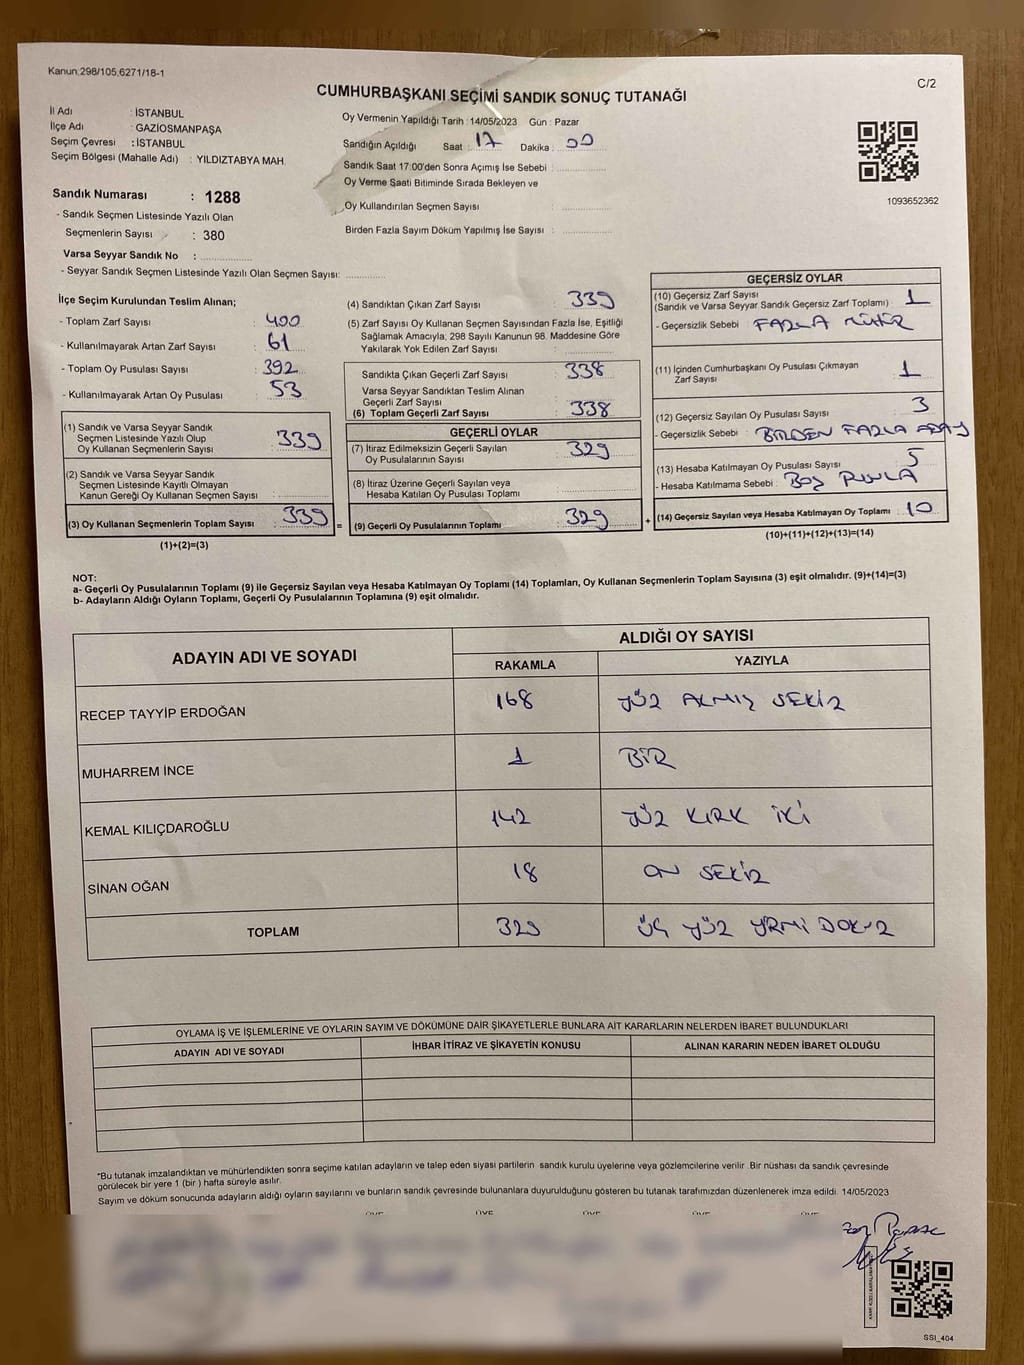 Kanun:298/105,6271/18-1
C/2
CUMHURBAŞKANI SEÇİMİ SANDIK SONUÇ TUTANAĞI
İl Adı : İSTANBUL
İlçe Adı : GAZİOSMANPAŞA
Seçim Çevresi : İSTANBUL
Seçim Bölgesi (Mahalle Adı) : YILDIZTABYA MAH.
Oy Vermenin Yapıldığı Tarih :14/05/2023 Gün : Pazar
Sandığın Açıldığı Saat : 17 Dakika : 00
Sandık Saat 17:00'den Sonra Açımış İse Sebebi :
Oy Verme Saati Bitiminde Sırada Bekleyen ve
Oy Kullandırılan Seçmen Sayısı :
Birden Fazla Sayım Döküm Yapılmış İse Sayısı :
1093652362
Sandık Numarası : 1288
- Sandık Seçmen Listesinde Yazılı Olan
Seçmenlerin Sayısı : 380
Varsa Seyyar Sandık No :
- Seyyar Sandık Seçmen Listesinde Yazılı Olan Seçmen Sayısı:
İlçe Seçim Kurulundan Teslim Alınan;
- Toplam Zarf Sayısı : 400
- Kullanılmayarak Artan Zarf Sayısı : 61
- Toplam Oy Pusulası Sayısı : 392
- Kullanılmayarak Artan Oy Pusulası : 53
(1) Sandık ve Varsa Seyyar Sandık
Seçmen Listesinde Yazılı Olup
Oy Kullanan Seçmenlerin Sayısı : 339
(2) Sandık ve Varsa Seyyar Sandık
Seçmen Listesinde Kayıtlı Olmayan
Kanun Gereği Oy Kullanan Seçmen Sayısı :
(3) Oy Kullanan Seçmenlerin Toplam Sayısı : 339 =
(1)+(2)=(3)
(4) Sandıktan Çıkan Zarf Sayısı : 339
(5) Zarf Sayısı Oy Kullanan Seçmen Sayısından Fazla İse, Eşitliği
Sağlamak Amacıyla; 298 Sayılı Kanunun 98. Maddesine Göre
Yakılarak Yok Edilen Zarf Sayısı :
Sandıkta Çıkan Geçerli Zarf Sayısı : 338
Varsa Seyyar Sandıktan Teslim Alınan
Geçerli Zarf Sayısı :
(6) Toplam Geçerli Zarf Sayısı : 338
GEÇERLİ OYLAR
(7) İtiraz Edilmeksizin Geçerli Sayılan
Oy Pusulalarının Sayısı : 329
(8) İtiraz Üzerine Geçerli Sayılan veya
Hesaba Katılan Oy Pusulası Toplamı :
(9) Geçerli Oy Pusulalarının Toplamı : 329 +
GEÇERSİZ OYLAR
(10) Geçersiz Zarf Sayısı
(Sandık ve Varsa Seyyar Sandık Geçersiz Zarf Toplamı) : 1
- Geçersizlik Sebebi : FAZLA MÜHÜR
(11) İçinden Cumhurbaşkanı Oy Pusulası Çıkmayan
Zarf Sayısı : 1
(12) Geçersiz Sayılan Oy Pusulası Sayısı : 3
- Geçersizlik Sebebi : BİRDEN FAZLA ADAY
(13) Hesaba Katılmayan Oy Pusulası Sayısı : 5
- Hesaba Katılmama Sebebi : BOŞ PUSULA
(14) Geçersiz Sayılan veya Hesaba Katılmayan Oy Toplamı : 10
(10)+(11)+(12)+(13)=(14)
NOT:
a- Geçerli Oy Pusulalarının Toplamı (9) ile Geçersiz Sayılan veya Hesaba Katılmayan Oy Toplamı (14) Toplamları, Oy Kullanan Seçmenlerin Toplam Sayısına (3) eşit olmalıdır. (9)+(14)=(3)
b- Adayların Aldığı Oyların Toplamı, Geçerli Oy Pusulalarının Toplamına (9) eşit olmalıdır.
ADAYIN ADI VE SOYADI ALDIĞI OY SAYISI
RAKAMLA YAZIYLA
RECEP TAYYİP ERDOĞAN 168 YÜZ ALMIŞ SEKİZ
MUHARREM İNCE 1 BİR
KEMAL KILIÇDAROĞLU 142 YÜZ KIRK İKİ
SİNAN OĞAN 18 ON SEKİZ
TOPLAM 329 ÜÇ YÜZ YİRMİ DOKUZ
OYLAMA İŞ VE İŞLEMLERİNE VE OYLARIN SAYIM VE DÖKÜMÜNE DAİR ŞİKAYETLERLE BUNLARA AİT KARARLARIN NELERDEN İBARET BULUNDUKLARI
ADAYIN ADI VE SOYADI İHBAR İTİRAZ VE ŞİKAYETİN KONUSU ALINAN KARARIN NEDEN İBARET OLDUĞU
*Bu tutanak imzalandıktan ve mühürlendikten sonra seçime katılan adayların ve talep eden siyasi partilerin sandık kurulu üyelerine veya gözlemcilerine verilir .Bir nüshası da sandık çevresinde
görülecek bir yere 1 (bir ) hafta süreyle asılır.
Sayım ve döküm sonucunda adayların aldığı oyların sayılarını ve bunların sandık çevresinde bulunanlara duyurulduğunu gösteren bu tutanak tarafımızdan düzenlenerek imza edildi. 14/05/2023
SSI_404